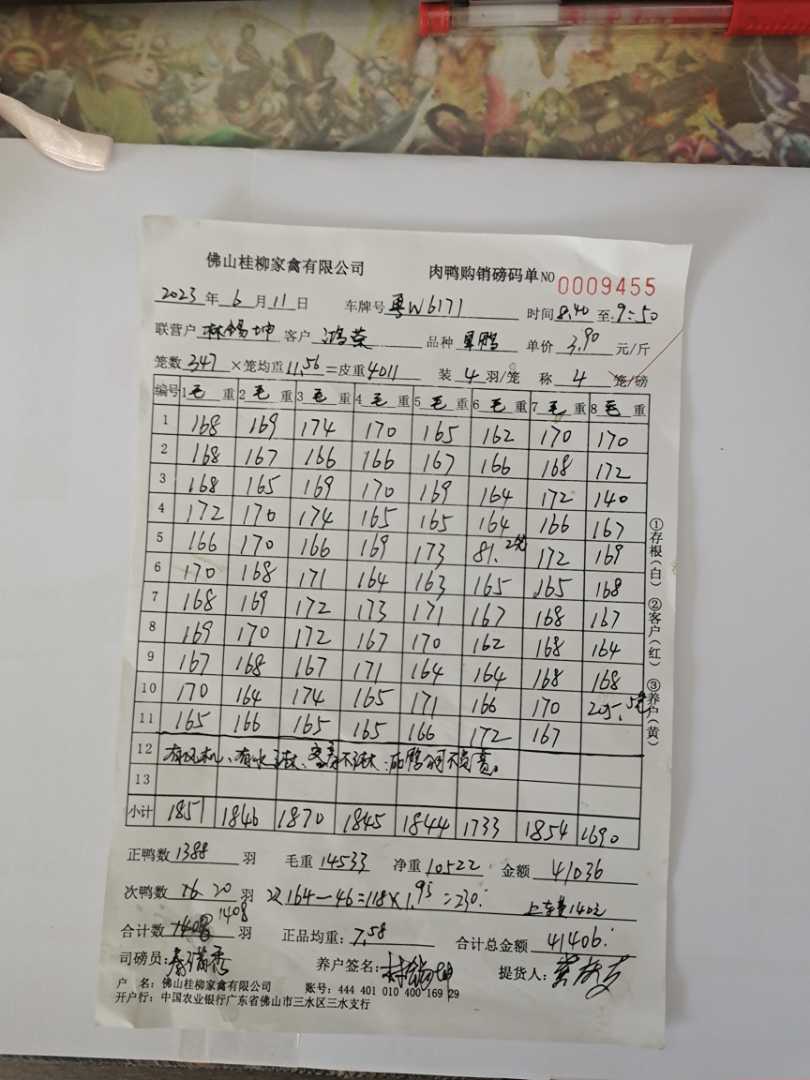 佛山桂柳家禽有限公司 肉鸭购销磅码单 NO 0009455
2023年6月11日 车牌号 粤W6171 时间 8.40 至 9:50
联营户 林锡坤 客户 鸿荣 品种 单价 3.90 元/斤
笼数 347 ×笼均重 11.56 =皮重 4011 装 4 羽/笼 称 4 笼/磅
编号 1 毛 重 2 毛 重 3 毛 重 4 毛 重 5 毛 重 6 毛 重 7 毛 重 8 毛 重
1 168 169 174 170 165 162 170 170
2 168 167 166 166 167 166 168 172
3 168 165 169 170 169 164 172 140
4 172 170 174 165 165 164 166 167
5 166 170 166 169 173 81.2笼 172 169
6 170 168 171 164 163 165 165 168
7 168 169 172 173 171 167 168 167
8 169 170 172 167 170 162 168 164
9 167 168 167 171 164 164 168 168
10 170 164 174 165 171 166 170 205.5笼
11 165 166 165 165 166 172 167
12 有风机、有水
13
小计 1851 1846 1870 1845 1844 1733 1854 1690
正鸭数 1388 羽 毛重 14533 净重 10522 金额 41036
次鸭数 20 羽 164-46=118×1.95=230. 上车费140元
1408
合计数 羽 正品均重: 7.58 合计总金额 41406.
司磅员: 养户签名: 林锡坤 提货人:
户 名: 佛山桂柳家禽有限公司 账号: 444 401 010 400 169 29
开户行: 中国农业银行广东省佛山市三水区三水支行
①存根(白) ②客户(红) ③养户(黄)